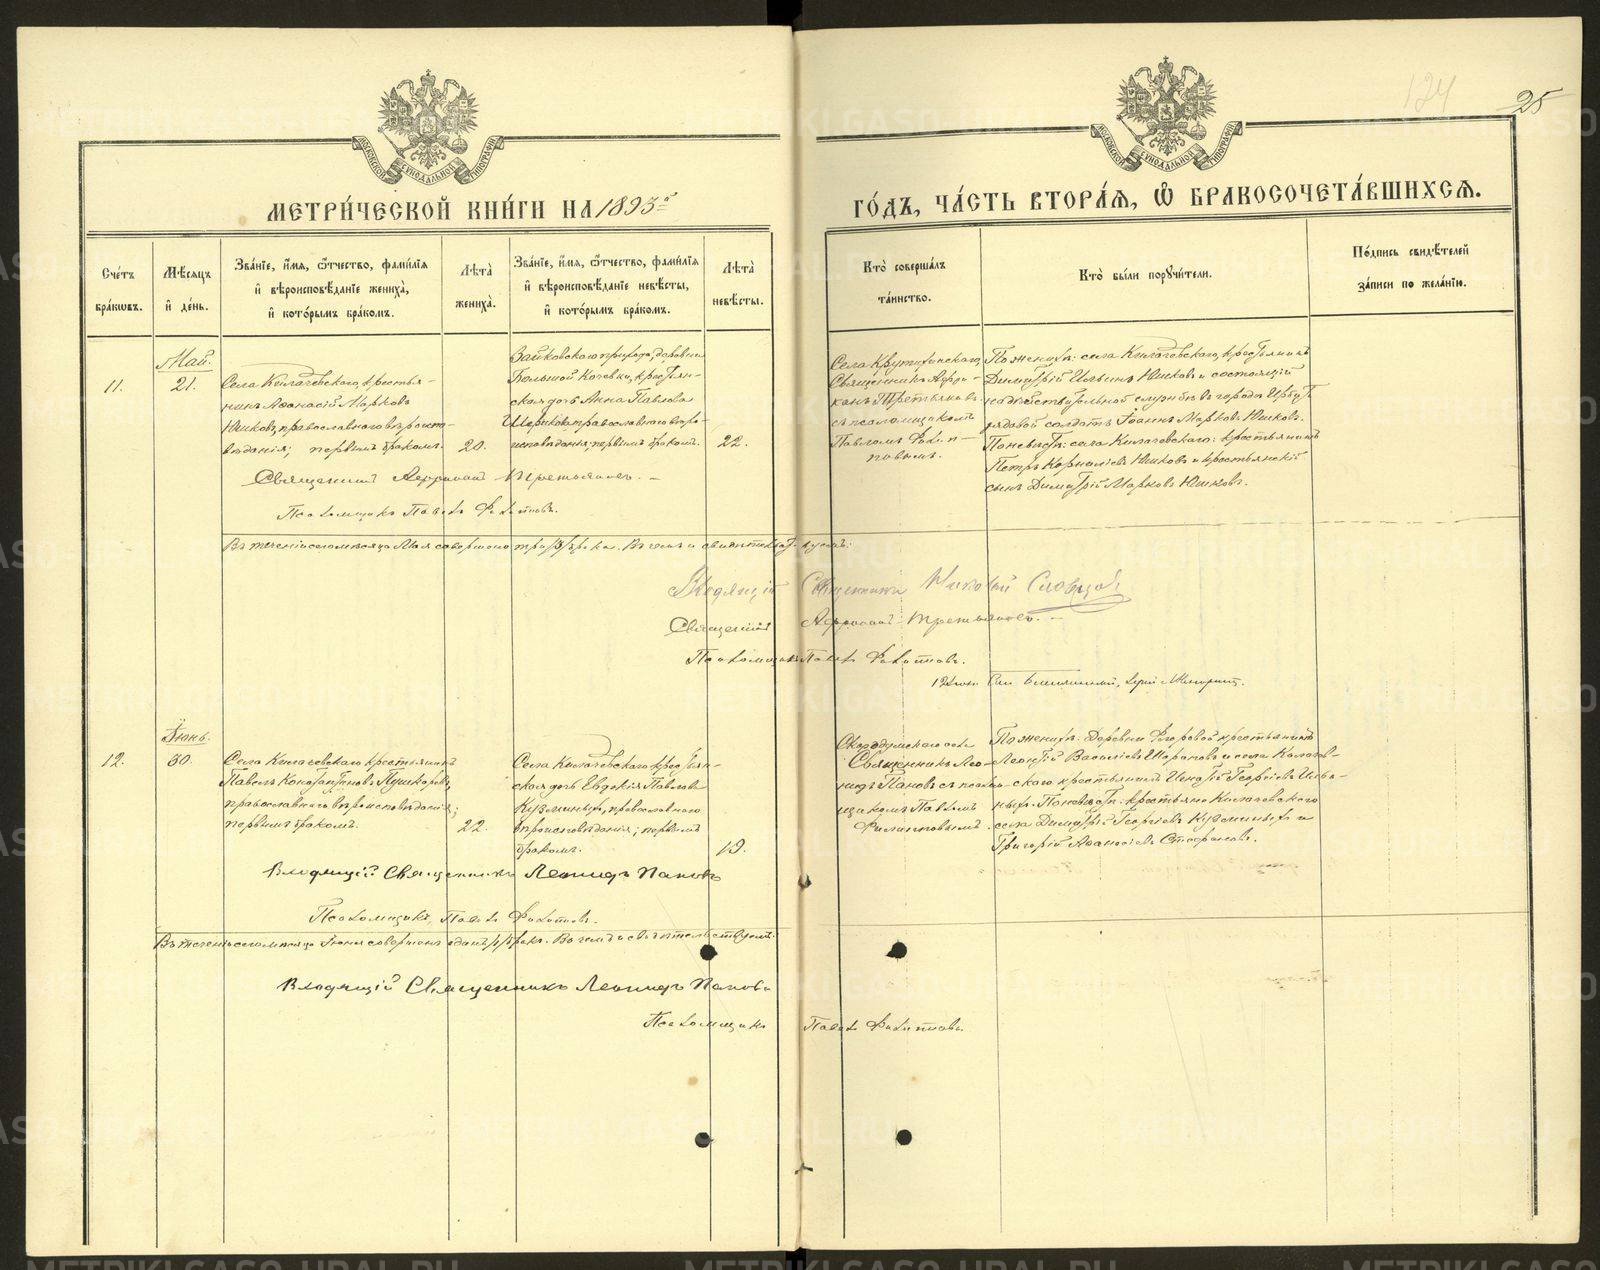 124
25
МОСКОВСКОЙ СѴНОДАЛЬНОЙ ТИПОГРАФІИ
МОСКОВСКОЙ СѴНОДАЛЬНОЙ ТИПОГРАФІИ
МЕТРИ́ЧЕСКОЙ КНИ́ГИ НА 1893й
ГО́ДЪ, ЧА́СТЬ ВТОРА́Я, Ѽ БРАКОСОЧЕТА́ВШИХСЯ.
Сче́тъ бра́кωвъ.
Мѣ́сяцъ и҆ де́нь.
Зва́нїе, и҆́мя, ѻ҆́тчество, фами́лїя и҆ вѣроисповѣ́данїе жениха̀, и҆ кото́рымъ бра́комъ.
Лѣ́та жениха̀.
Зва́нїе, и҆́мя, ѻ҆́тчество, фами́лїя и҆ вѣроисповѣ́данїе невѣ́сты, и҆ кото́рымъ бра́комъ.
Лѣ́та невѣ́сты.
Кто̀ соверша́лъ та́инство.
Кто̀ бы́ли порꙋчи́тели.
По́дпись свидѣ́телей за́писи по жела́нїю.
Май.
11.
21.
Села Килачевскаго, крестья-
нинъ Аѳанасій Марковъ
Юшковъ, православнаго вѣроисповѣданія; первымъ бракомъ.
20.
Зайковскаго прихода, деревни
Большой Кочевки, крестьян-
ская дочь Анна Павлова
православнаго вѣро-
исповѣданія, первымъ бракомъ.
22.
Села Крутихинскаго,
Священникъ Африканъ Третьяковъ
съ псаломщикомъ
Павломъ Филипповымъ.
По женихѣ: села Килачевскаго, крестьянинъ
Димитрій Ильинъ Юшковъ и состоящій
на дѣйствительной службѣ въ городѣ Ирбитѣ
рядовой солдатъ Іоаннъ Марковъ Юшковъ.
По невѣстѣ: села Килачевскаго: крестьянинъ
Петръ Корниліевъ Юшковъ и крестьянскій
сынъ Димитрій Марковъ Юшковъ.
Священникъ Африканъ Третьяковъ.
Псаломщикъ Павелъ Филипповъ.
Въ теченіи сего мѣсяца Мая совершено три /3/ брака. Въ чемъ и свидѣтельствуемъ:
Священникъ Николай Словцовъ
Священникъ Африканъ Третьяковъ.
Псаломщикъ Павелъ Филипповъ.
Іюнь.
12.
30.
Села Килачевскаго крестьянинъ
Павелъ Константиновъ Пушкаревъ,
православнаго вѣроисповѣданія;
первымъ бракомъ.
22.
Села Килачевскаго крестьян-
ская дочь Евдокія Павлова
Кузьминыхъ, православнаго
вѣроисповѣданія; первымъ
бракомъ.
19.
Скородумскаго села
Священникъ Леонидъ Пановъ съ псаломщикомъ Павломъ
Филипповымъ.
По женихѣ: деревни Ѳедоровой крестьянинъ
Леонтій Васильевъ Шарапов и села Килачевскаго крестьянинъ Игнатій Георгіевъ Ильиныхъ. По невѣстѣ: крестьяне Килачевскаго
села Димитрій Георгіевъ Кузьминыхъ и
Григорій Аѳанасіевъ Стафеевъ.
Владящій Священникъ Леонидъ Пановъ
Псаломщикъ Павелъ Филипповъ.
Въ теченіи сего мѣсяца Іюня совершенъ одинъ /1/ бракъ. Въ чемъ и свидѣтельствуемъ:
Владящій Священникъ Леонидъ Пановъ
Псаломщикъ Павелъ Филипповъ.
METRIKI.GASO-URAL.RU